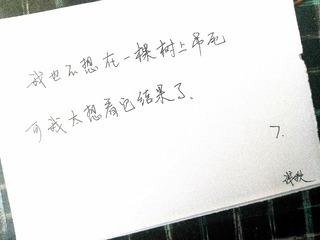 我也不想在一棵树上吊死
可我太想看它结果了.
7.